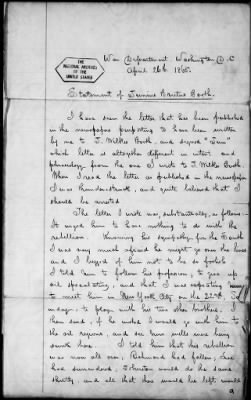 THE
NATIONAL ARCHIVES
OF THE
UNITED STATES
War Department, Washington D.C.
April 26th 1865.
Statement of Junius Brutus Booth.
I have seen the letter that has been published
in the newspapers purporting to have been written
by me to J. Wilkes Booth, and signed June
which letter is altogether different in intent and
phraseology from the one I wrote to J. Wilkes Booth
When I read the letter as published in the newspaper
I was thunderstruck, and quite believed that I
should be arrested
The letter I wrote was, substantially, as follows:
It urged him to have nothing to do with the
rebellion. Knowing his sympathy for the South
I was very much afraid he might go over the lines
and I begged of him not to be so foolish
I told him to follow his profession, to give up
oil speculating, and that I was expecting
to meet him in New York City on the 22nd,
to play with his two other brothers. I
then said, if he wished I would go with him to
the oil regions, and see how wells were being
sunk here. I told him that his rebellion
was now all over, Richmond had fallen, Lee
had surrendered, Johnston would do the same
shortly, and all that was would be left would